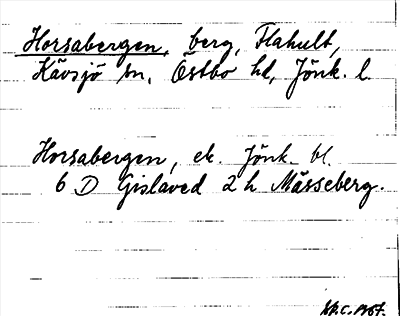 Horsabergen, berg, Flahult,
Kävsjö sn, Östbo hd, Jönk. l.
Horsabergen, ek. Jönk. bl.
6 D Gislaved 2 h Mässeberg.